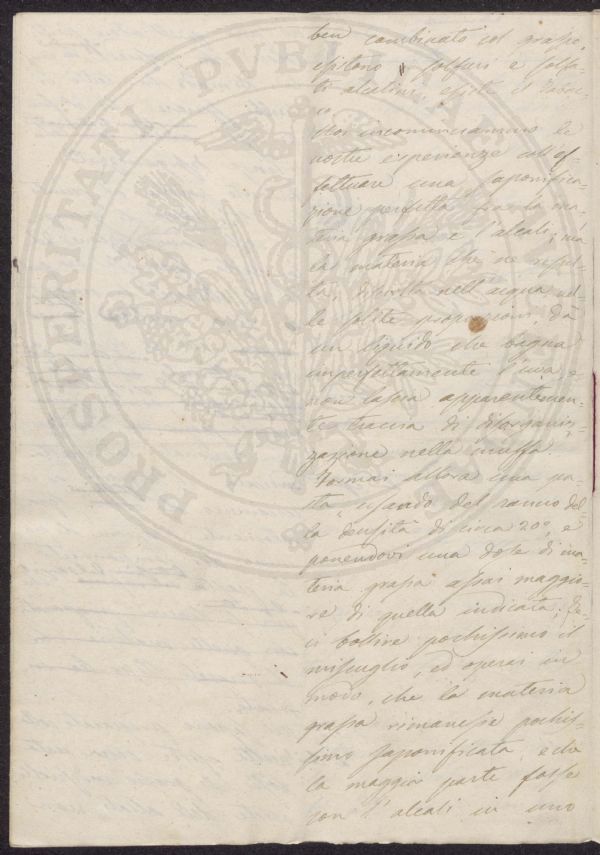 ben combinato col grasso,
esistono i solfuri e solfa-
ti alcalini, esiste il tabac-
co.
Noi incominciammo le
nostre esperienze coll'ef-
fettuare una saponifica-
zione perfetta fra la ma-
teria grassa e l'alcali; ma
la materia che ne resul-
ta, disciolta nell'acqua nel-
le solite proporzioni, dà
un liquido che bagna
imperfettamente l'uva e
non lascia apparentemen-
te traccia di disorganiz-
zazione nella muffa.
Formai allora una pa-
sta, usando del ranno del-
la densità di circa 20°, e
ponendovi una dose di ma-
teria grassa assai maggio-
re di quella indicata; fe-
ci bollire pochissimo il
miscuglio, ed operai in
modo, che la materia
grassa rimanesse pochis-
simo saponificata, e che
la maggior parte fosse
con l'alcali in uno
PROSPERITATI PVBLICAE